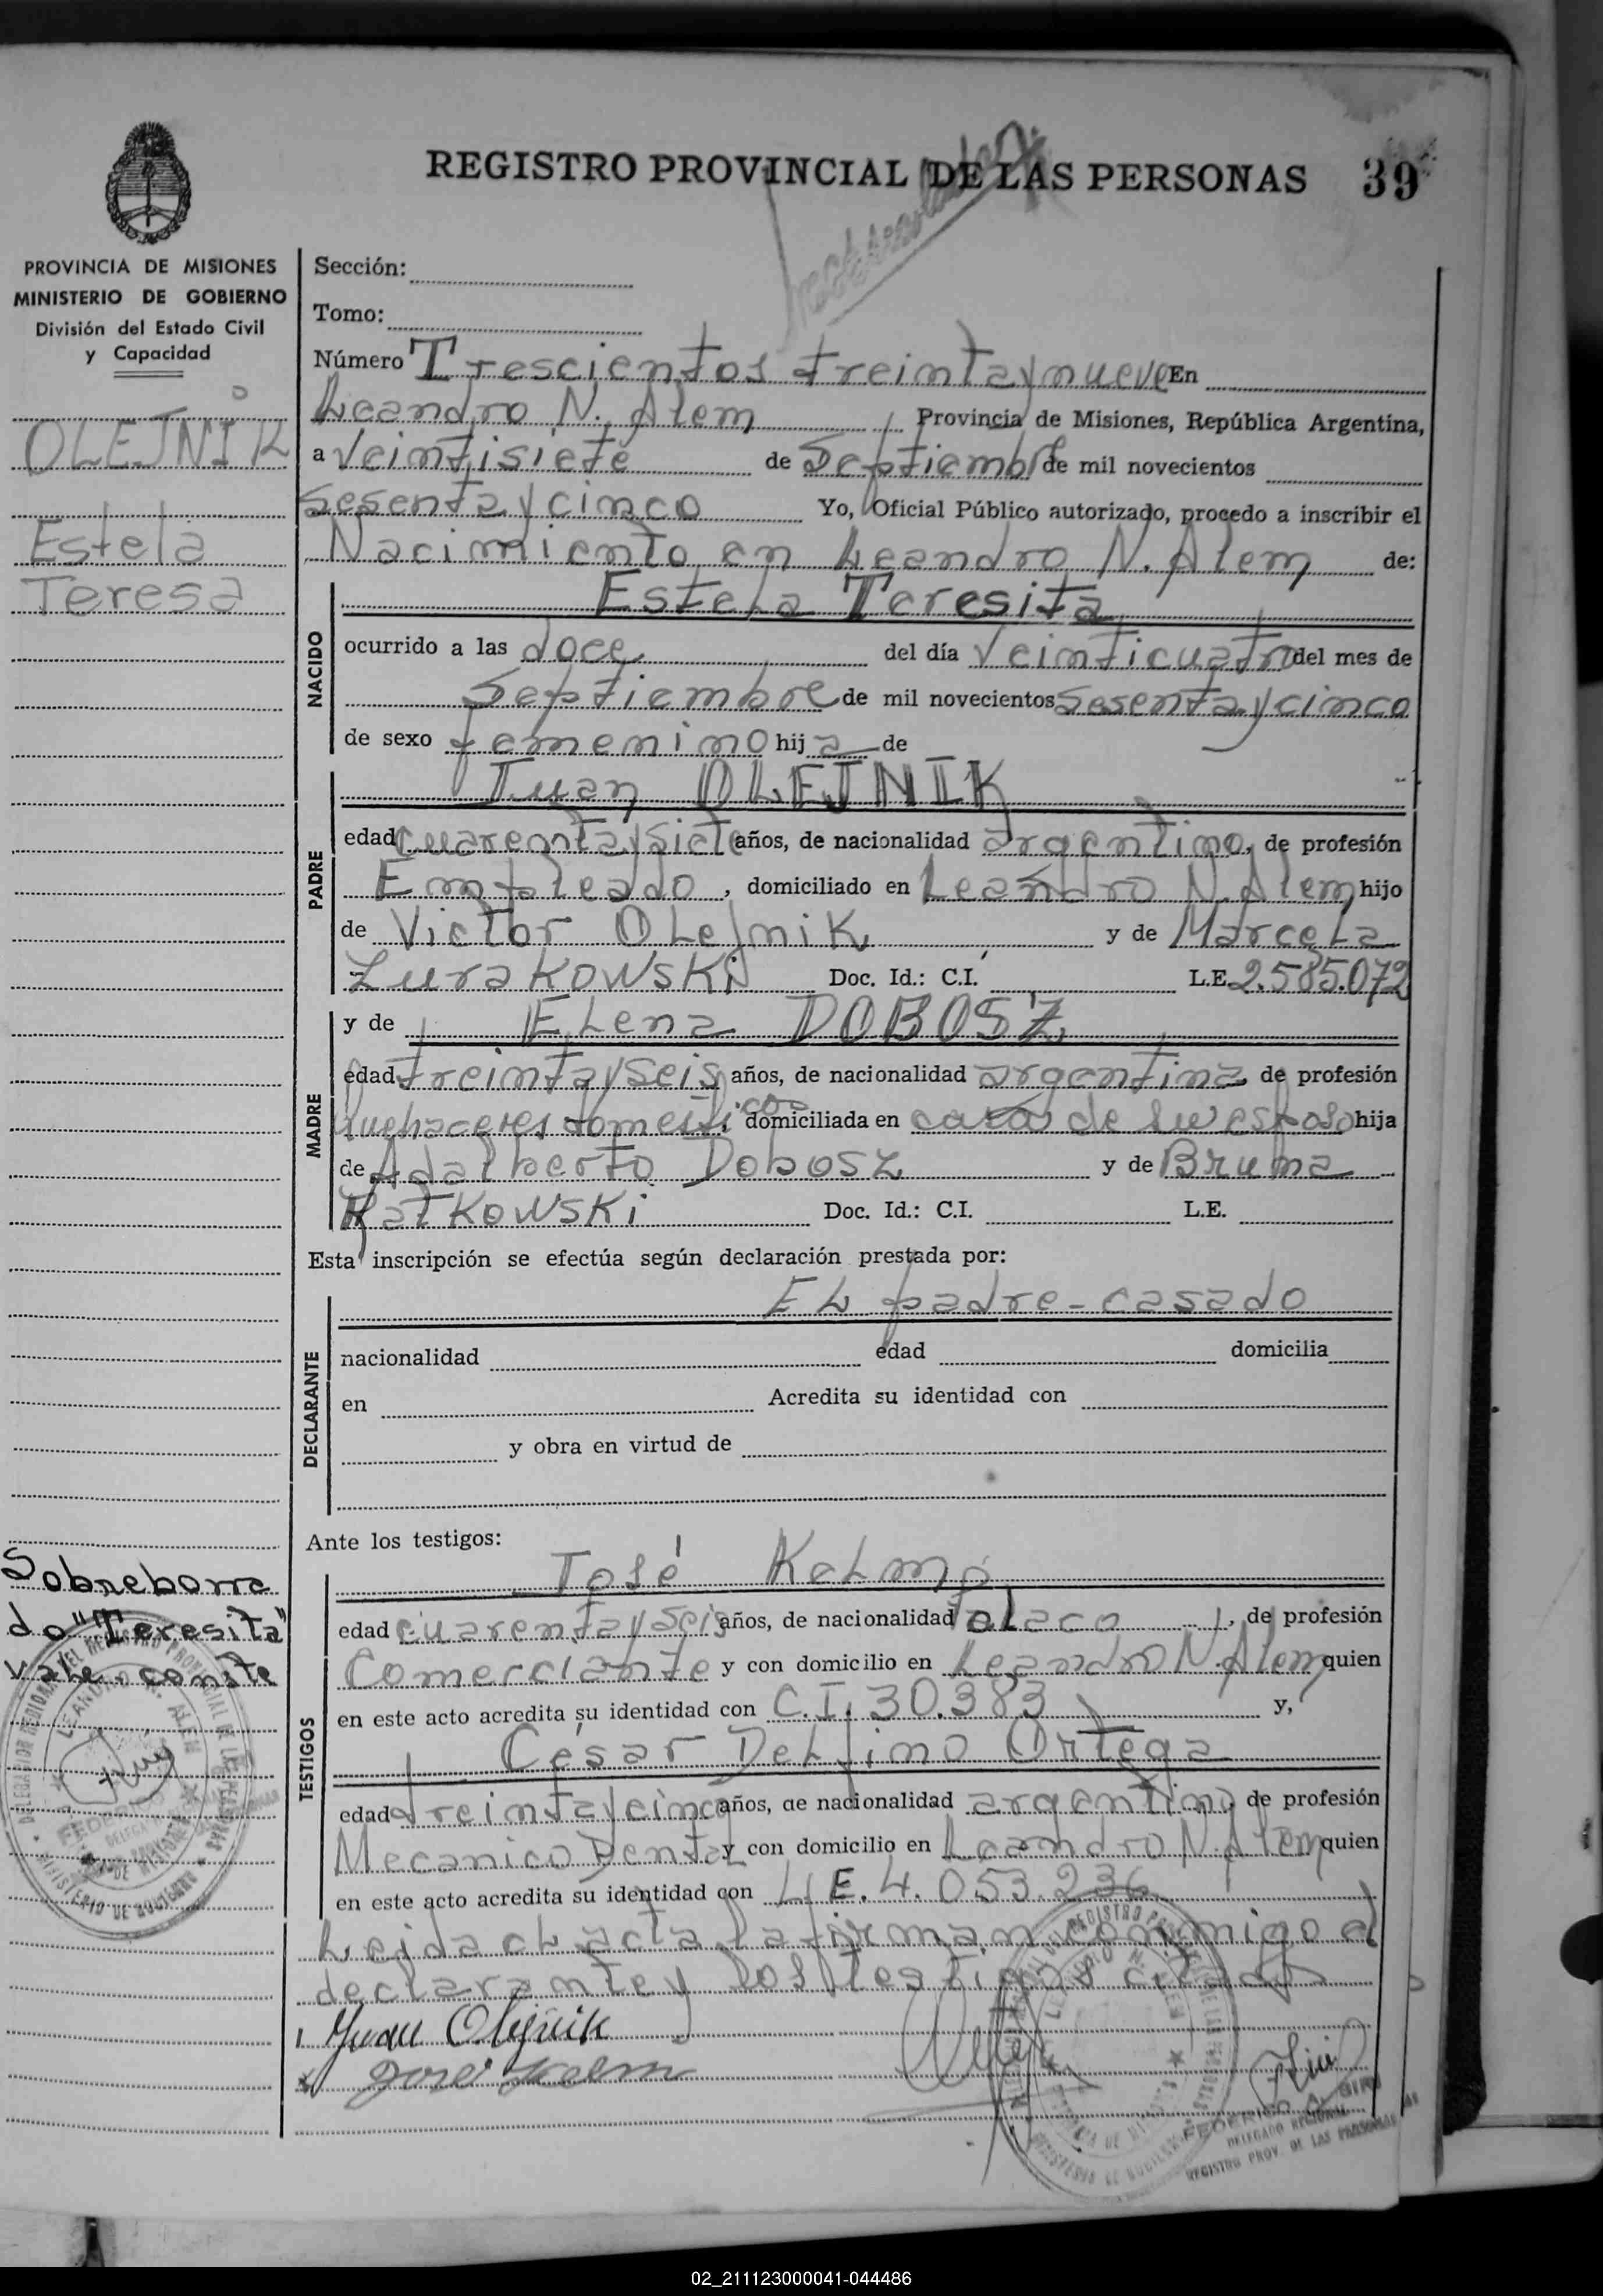 REGISTRO PROVINCIAL DE LAS PERSONAS 39
PROVINCIA DE MISIONES
MINISTERIO DE GOBIERNO
División del Estado Civil
y Capacidad
OLEJNIK
Estela
Teresa
Sección:
Tomo:
Número Trescientos treinta y nueve En
Leandro N. Alem Provincia de Misiones, República Argentina,
a veintisiete de Septiembre de mil novecientos
sesenta y cinco Yo, Oficial Público autorizado, procedo a inscribir el
Nacimiento en Leandro N. Alem de:
NACIDO
Estela Teresita
ocurrido a las doce del día veinticuatro del mes de
Septiembre de mil novecientos sesenta y cinco
de sexo femenino hija de
PADRE
Juan OLEJNIK
edad cuarenta y siete años, de nacionalidad argentino, de profesión
Empleado, domiciliado en Leandro N. Alem hijo
de Victor Olejnik y de Marcela
Zurakowski Doc. Id.: C.I. L.E. 2.585.072
MADRE
y de Elena DOBOSZ
edad treinta y seis años, de nacionalidad argentina, de profesión
Quehaceres domesticos domiciliada en casa de su esposo hija
de Adalberto Dobosz y de Bruna
Ratkowski Doc. Id.: C.I. L.E.
Esta inscripción se efectúa según declaración prestada por:
DECLARANTE
El padre - casado
nacionalidad edad domicilia
en Acredita su identidad con
y obra en virtud de
Ante los testigos:
TESTIGOS
José Kelmp
edad cuarenta y seis años, de nacionalidad polaco, de profesión
Comerciante y con domicilio en Leandro N. Alem quien
en este acto acredita su identidad con C.I. 30.383 y,
César Delfino Ortega
edad treinta y cinco años, de nacionalidad argentino, de profesión
Mecanico Dental y con domicilio en Leandro N. Alem quien
en este acto acredita su identidad con L.E. 4.053.236
Leida el acta la firman conmigo el
declarante y los testigos citados
Juan Olejnik
José
Sobreborra
do "Teresita"
vale. conste
DELEGADO REGIONAL
REGISTRO PROV. DE LAS PERSONAS
02_211123000041-044486